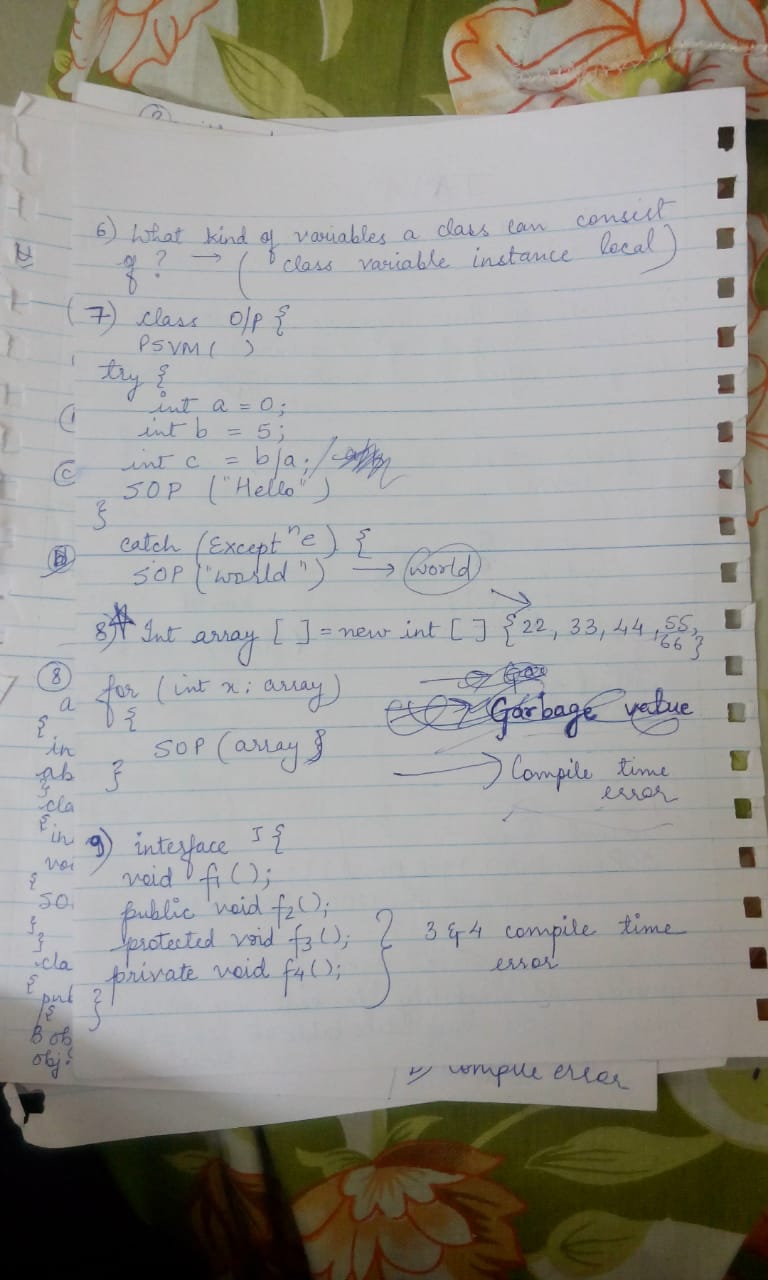 6) What kind of variables a class can consist
of? → (class variable instance local)
(7) class O/P {
PSVM( )
try {
int a = 0;
int b = 5;
int c = b/a;
SOP ("Hello")
}
catch (Exceptⁿ e) {
SOP ("world") → world
8) Int array [ ] = new int [ ] {22, 33, 44, 55,
66}
for (int x : array)
{
SOP (array}
Garbage value
}
→ Compile time
error
9) interface I {
void f1();
public void f2();
protected void f3();
private void f4();
}
} 3 & 4 compile time
error
8
a
{
in
ab
}
cla
{
in
voi
{
SO
}
}
cla
{
pub
{
B ob
obj.
compile error